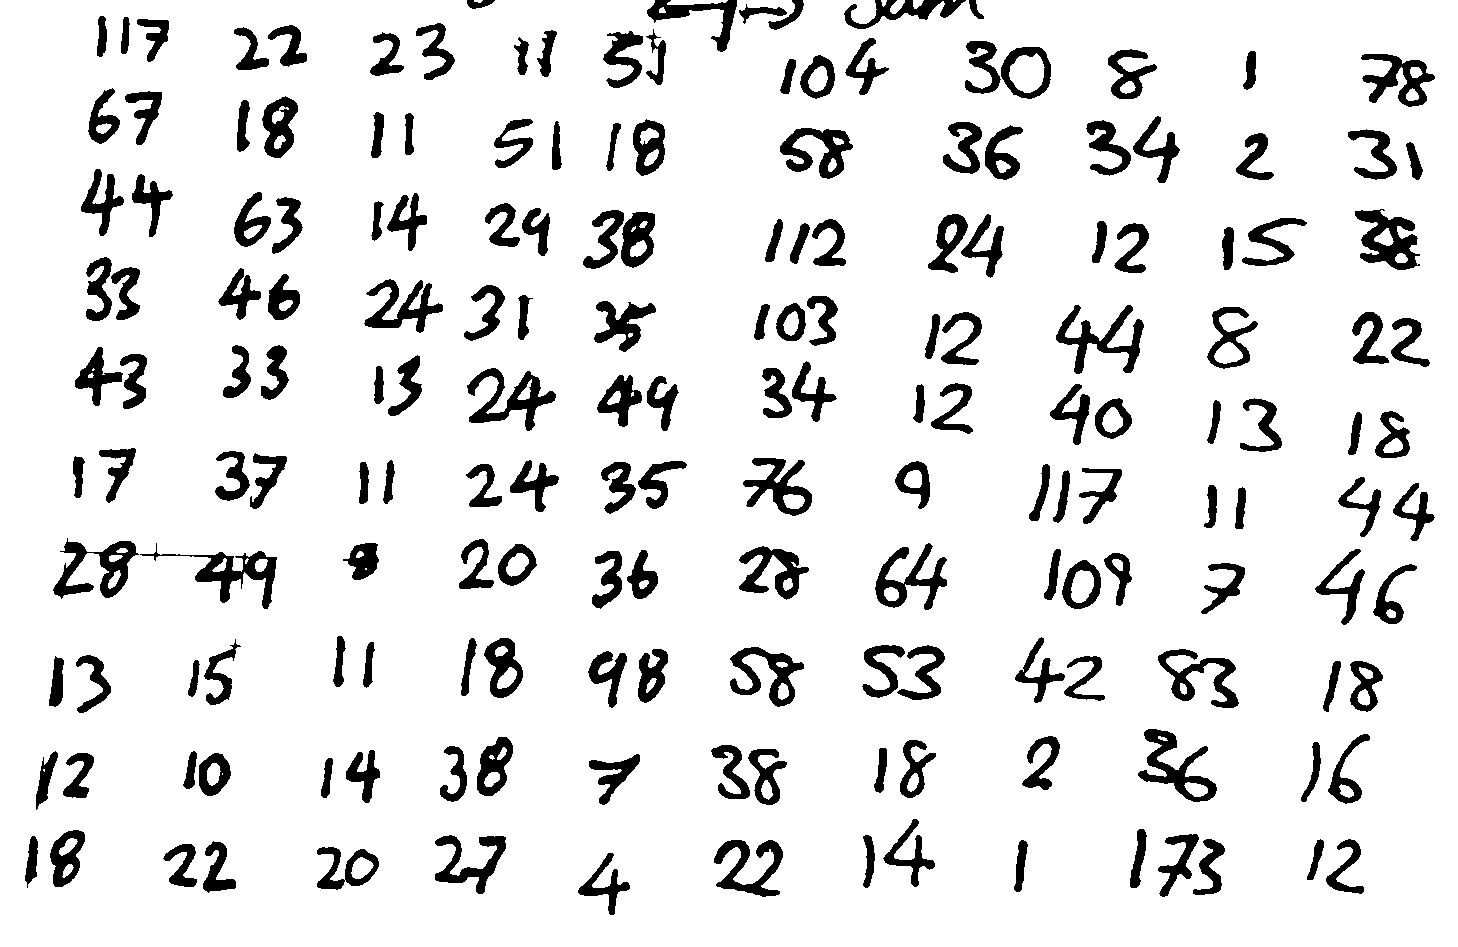 Sam
117 22 23 11 51 104 30 8 1 78
67 18 11 51 18 58 36 34 2 31
44 63 14 29 38 112 24 12 15 38
33 46 24 31 35 103 12 44 8 22
43 33 13 24 49 34 12 40 13 18
17 37 11 24 35 76 9 117 11 44
28 49 8 20 36 28 64 109 7 46
13 15 11 18 98 58 53 42 83 18
12 10 14 38 7 38 18 2 36 16
18 22 20 27 4 22 14 1 173 12